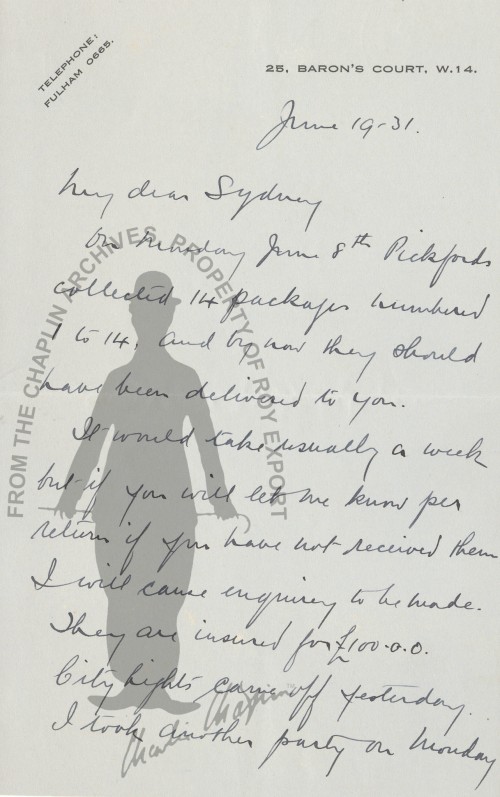 TELEPHONE:
FULHAM 0665.
25, BARON'S COURT, W.14.
June 19-31.
My dear Sydney
On Monday June 8th Pickfords
collected 14 packages numbered
1 to 14. and by now they should
have been delivered to you.
It would take usually a week
but if you will let me know per
return if you have not received them
I will cause enquirey to be made.
They are insured for £100.0.0.
City Lights came off yesterday.
I took another party on Monday
FROM THE CHAPLIN ARCHIVES, PROPERTY OF ROY EXPORT
Charlie Chaplin